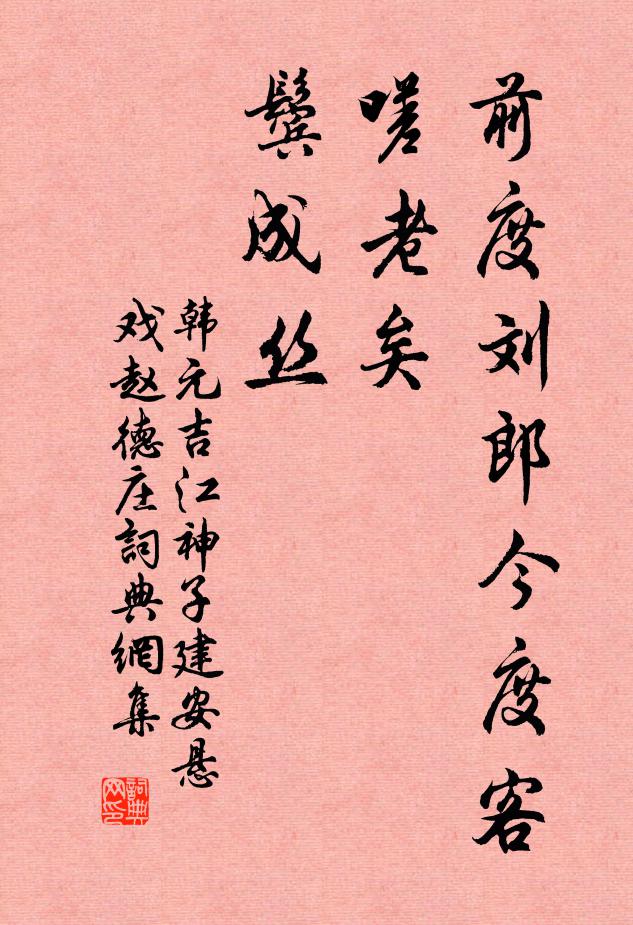 前度刘郎今度客
嗟老矣
鬓成丝
韩元吉江神子建安悬
戏赵德庄詞典網集
詞典网印